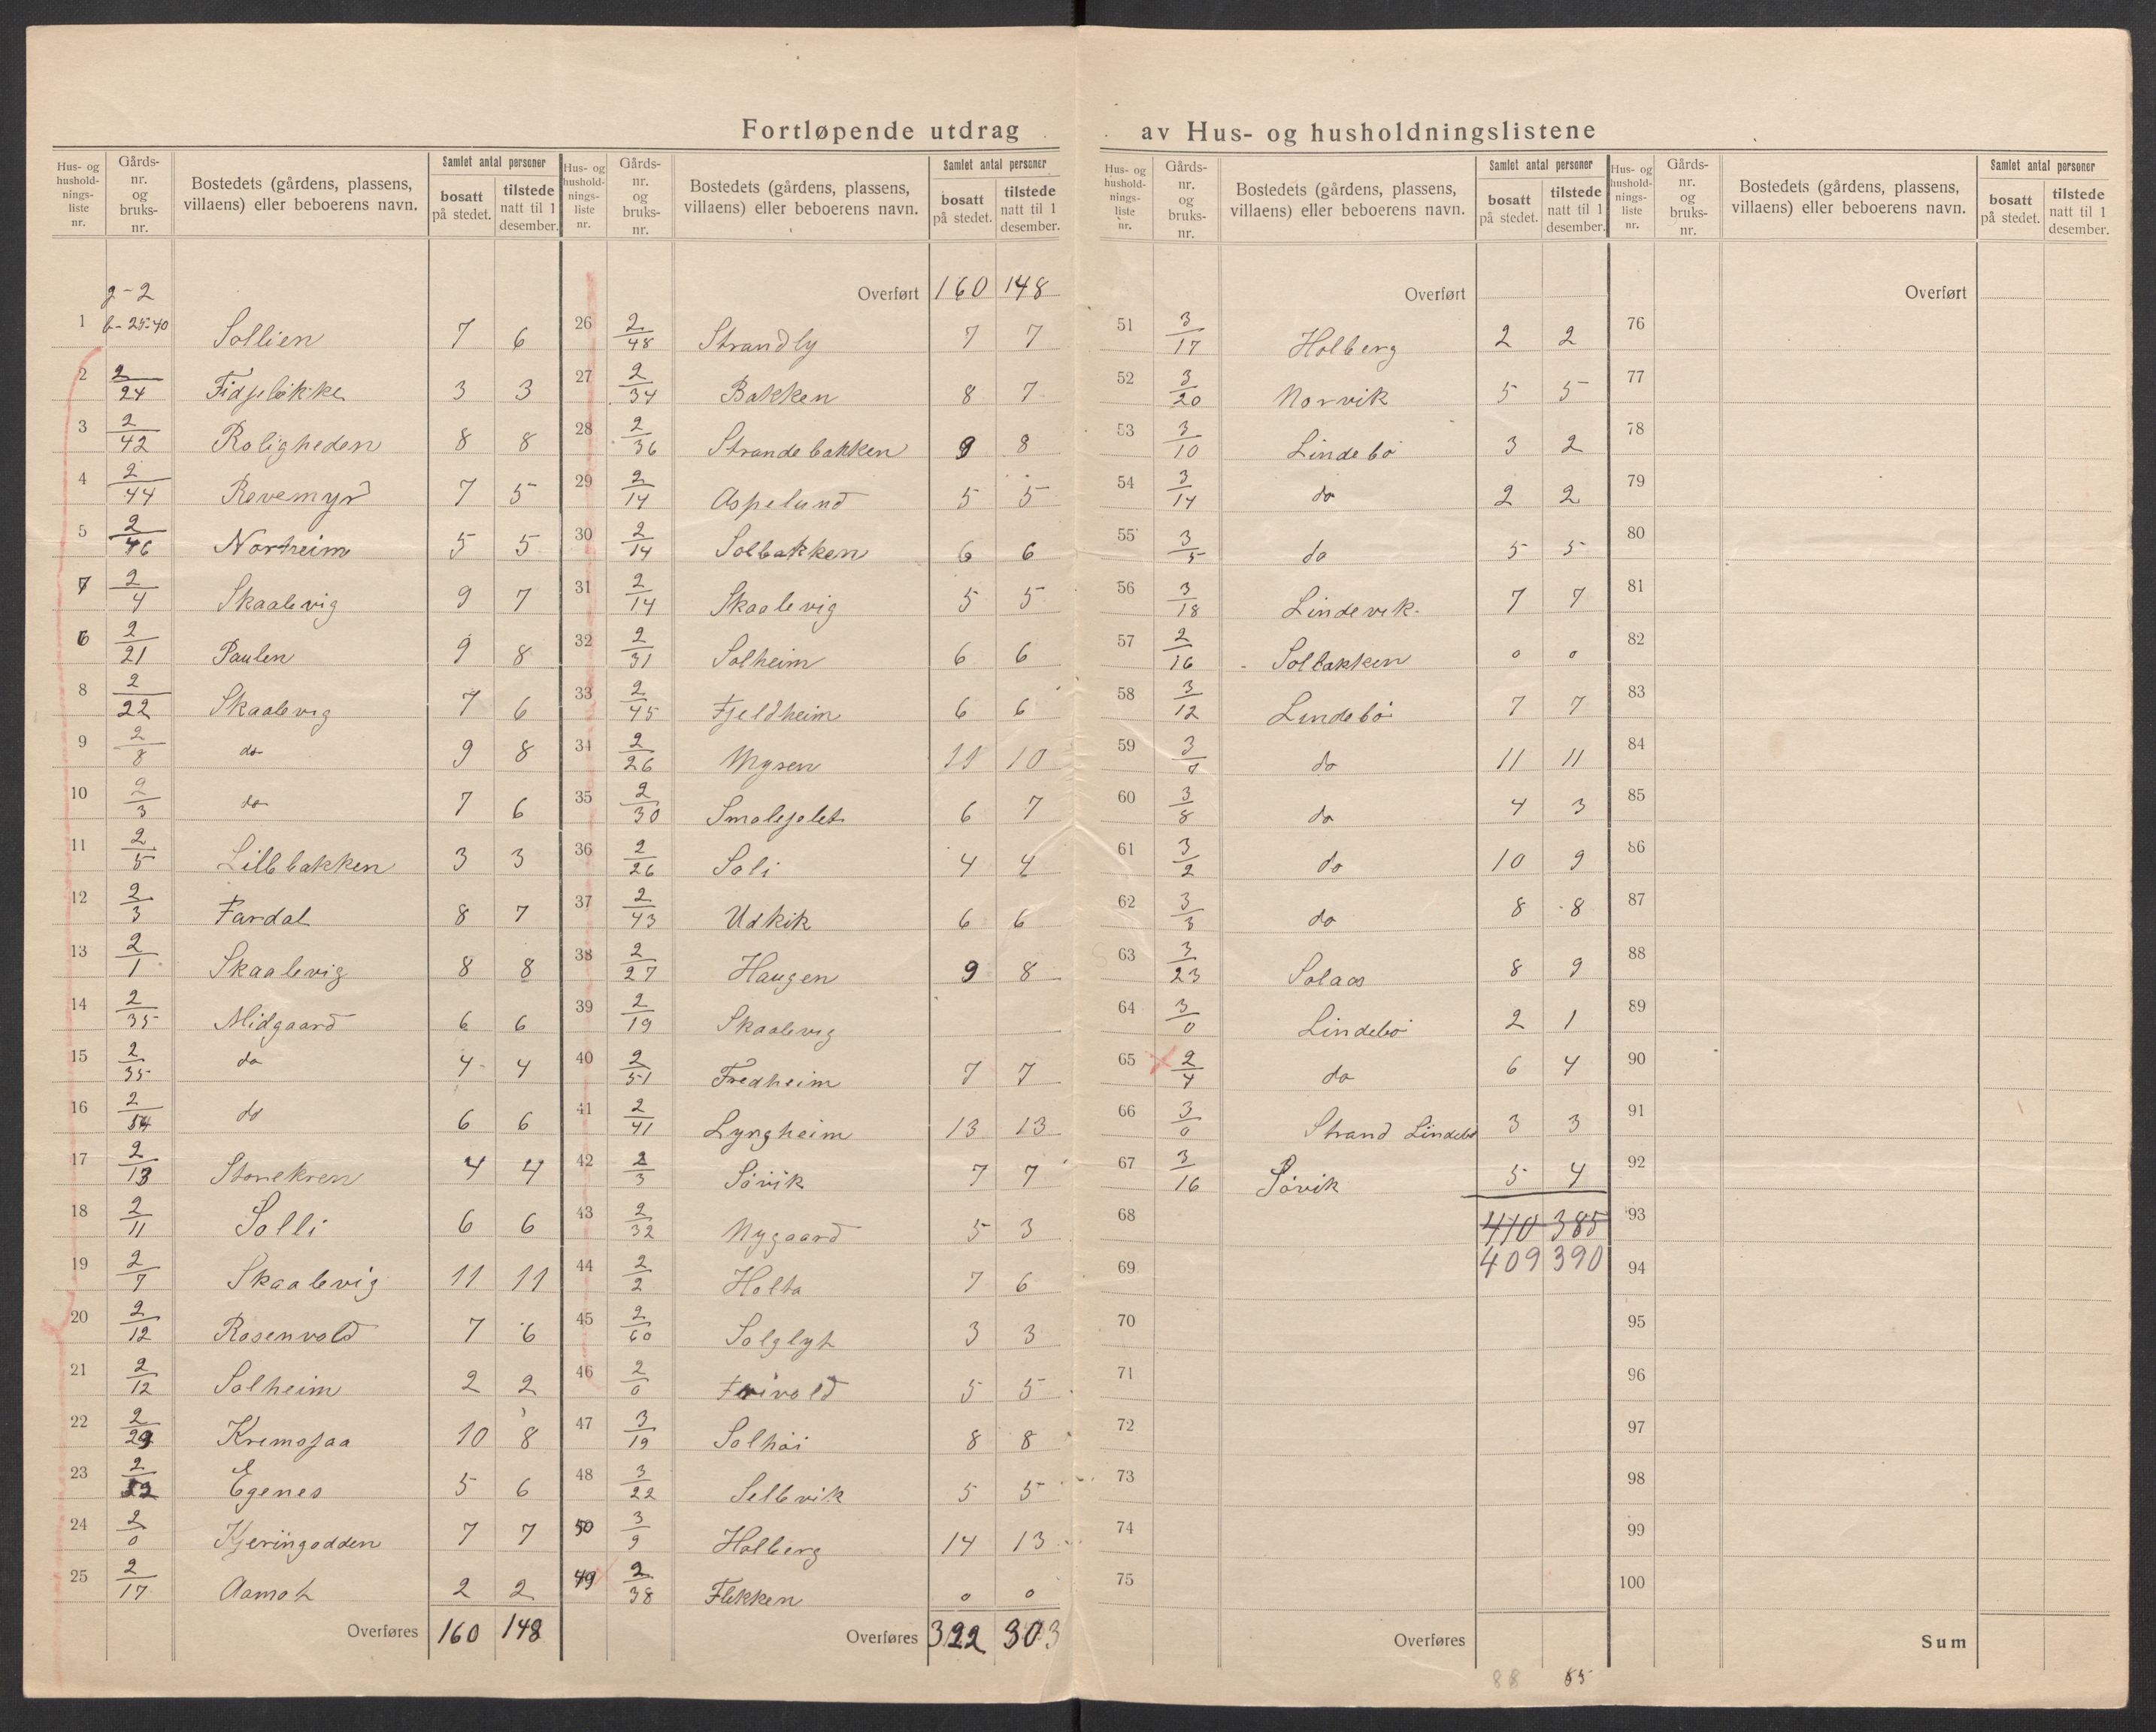 Fortløpende utdrag av Hus- og husholdningslistene
Hus- og husholdnings-liste nr. | Gårds-nr. og bruks-nr. | Bostedets (gårdens, plassens, villaens) eller beboerens navn. | Samlet antal personer: bosatt på stedet. | tilstede natt til 1 desember.
g-2
1 | b-25-40 | Sollien | 7 | 6
2 | 2/24 | Fidjeløkke | 3 | 3
3 | 2/42 | Roligheden | 8 | 8
4 | 2/44 | Revemyr | 7 | 5
5 | 2/46 | Nortreim | 5 | 5
7 | 2/4 | Skaalevig | 9 | 7
6 | 2/21 | Paulen | 9 | 8
8 | 2/22 | Skaalevig | 7 | 6
9 | 2/8 | do | 9 | 8
10 | 2/3 | do | 7 | 6
11 | 2/5 | Lillebakken | 3 | 3
12 | 2/3 | Fardal | 8 | 7
13 | 2/1 | Skaalevig | 8 | 8
14 | 2/35 | Midgaard | 6 | 6
15 | 2/35 | do | 4 | 4
16 | 2/54 | do | 6 | 6
17 | 2/13 | Stenekren | 4 | 4
18 | 2/11 | Solli | 6 | 6
19 | 2/7 | Skaalevig | 11 | 11
20 | 2/12 | Rosenvold | 7 | 6
21 | 2/12 | Solheim | 2 | 2
22 | 2/29 | Kremojaa | 10 | 8
23 | 2/52 | Egenes | 5 | 6
24 | 2/0 | Kjeringodden | 7 | 7
25 | 2/17 | Aamot | 2 | 2
Overføres | 160 | 148
Hus- og husholdnings-liste nr. | Gårds-nr. og bruks-nr. | Bostedets (gårdens, plassens, villaens) eller beboerens navn. | Samlet antal personer: bosatt på stedet. | tilstede natt til 1 desember.
Overført | 160 | 148
26 | 2/48 | Strandly | 7 | 7
27 | 2/34 | Bakken | 8 | 7
28 | 2/36 | Strandebakken | 9 | 8
29 | 2/14 | Aspelund | 5 | 5
30 | 2/14 | Solbakken | 6 | 6
31 | 2/14 | Skaalevig | 5 | 5
32 | 2/31 | Solheim | 6 | 6
33 | 2/45 | Fjeldheim | 6 | 6
34 | 2/26 | Mysen | 11 | 10
35 | 2/30 | Smalejelet | 6 | 7
36 | 2/26 | Soli | 4 | 4
37 | 2/43 | Udkik | 6 | 6
38 | 2/27 | Haugen | 9 | 8
39 | 2/19 | Skaalevig
40 | 2/51 | Fredheim | 7 | 7
41 | 2/41 | Lyngheim | 13 | 13
42 | 2/3 | Søvik | 7 | 7
43 | 2/32 | Nygaard | 5 | 3
44 | 2/2 | Holta | 7 | 6
45 | 2/60 | Solglyt | 3 | 3
46 | 2/0 | Frivold | 5 | 5
47 | 3/19 | Solhøi | 8 | 8
48 | 3/22 | Sellevik | 5 | 5
50 | 3/9 | Holberg | 14 | 13
49 | 2/38 | Flekken | 0 | 0
Overføres | 322 | 303
Hus- og husholdnings-liste nr. | Gårds-nr. og bruks-nr. | Bostedets (gårdens, plassens, villaens) eller beboerens navn. | Samlet antal personer: bosatt på stedet. | tilstede natt til 1 desember.
Overført
51 | 3/17 | Holberg | 2 | 2
52 | 3/20 | Norvik | 5 | 5
53 | 3/10 | Lindebø | 3 | 2
54 | 3/14 | do | 2 | 2
55 | 3/5 | do | 5 | 5
56 | 3/18 | Lindevik | 7 | 7
57 | 2/16 | Solbakken | 0 | 0
58 | 3/12 | Lindebø | 7 | 7
59 | 3/7 | do | 11 | 11
60 | 3/8 | do | 4 | 3
61 | 3/2 | do | 10 | 9
62 | 3/3 | do | 8 | 8
63 | 3/23 | Solaas | 8 | 9
64 | 3/0 | Lindebø | 2 | 1
65 | 2/4 | do | 6 | 4
66 | 3/0 | Strand Lindebø | 3 | 3
67 | 3/16 | Søvik | 5 | 4
68 | 410 | 385
69 | 409 | 390
70
71
72
73
74
75
Overføres
88 | 85
Hus- og husholdnings-liste nr. | Gårds-nr. og bruks-nr. | Bostedets (gårdens, plassens, villaens) eller beboerens navn. | Samlet antal personer: bosatt på stedet. | tilstede natt til 1 desember.
Overført
76
77
78
79
80
81
82
83
84
85
86
87
88
89
90
91
92
93
94
95
96
97
98
99
100
Sum